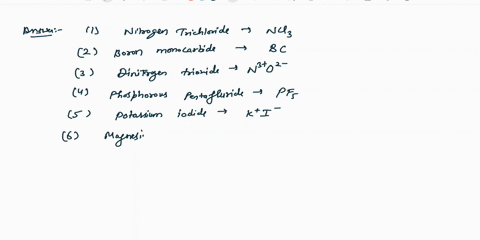 Answer:- (1) Nitrogen Trichloride → NCl₃
(2) Boron monocarbide → BC
(3) Dinitrogen trioxide → N³⁺O²⁻
(4) Phosphorous Pentafluride → PF₅
(5) Potassium iodide → K⁺I⁻
(6) Magnesi